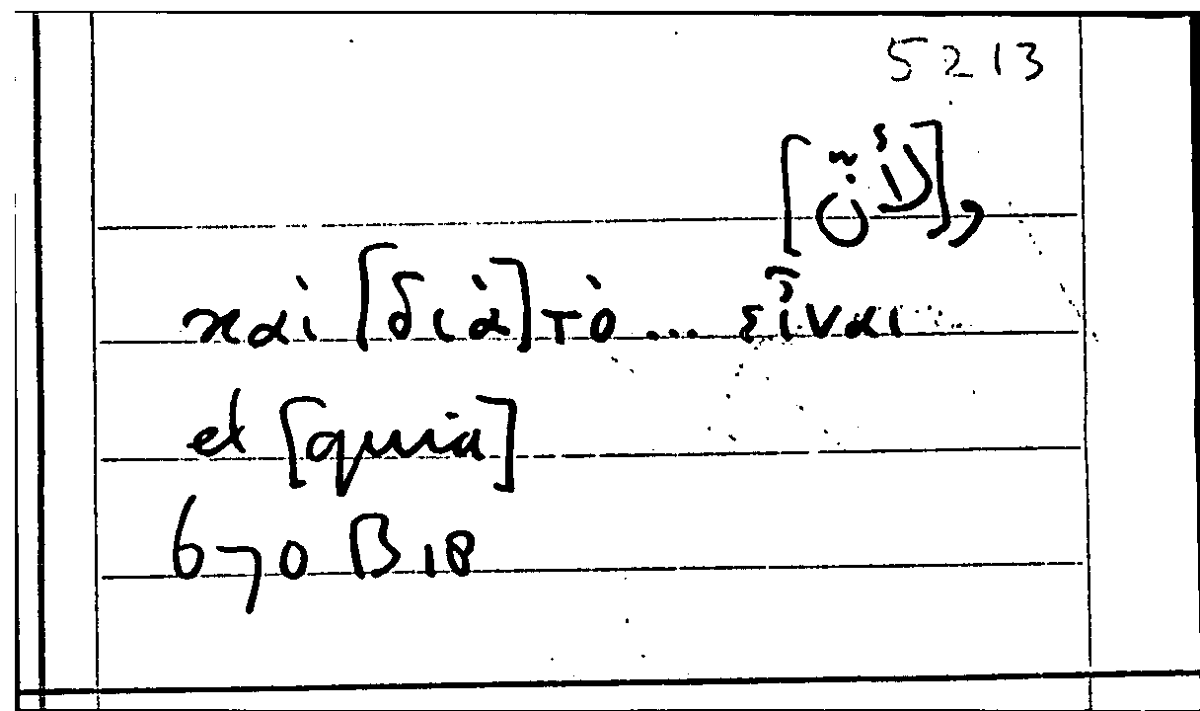 5213
و[لأنّ]
καὶ [διὰ] τὸ ... εἶναι
et [quia]
670 B 18